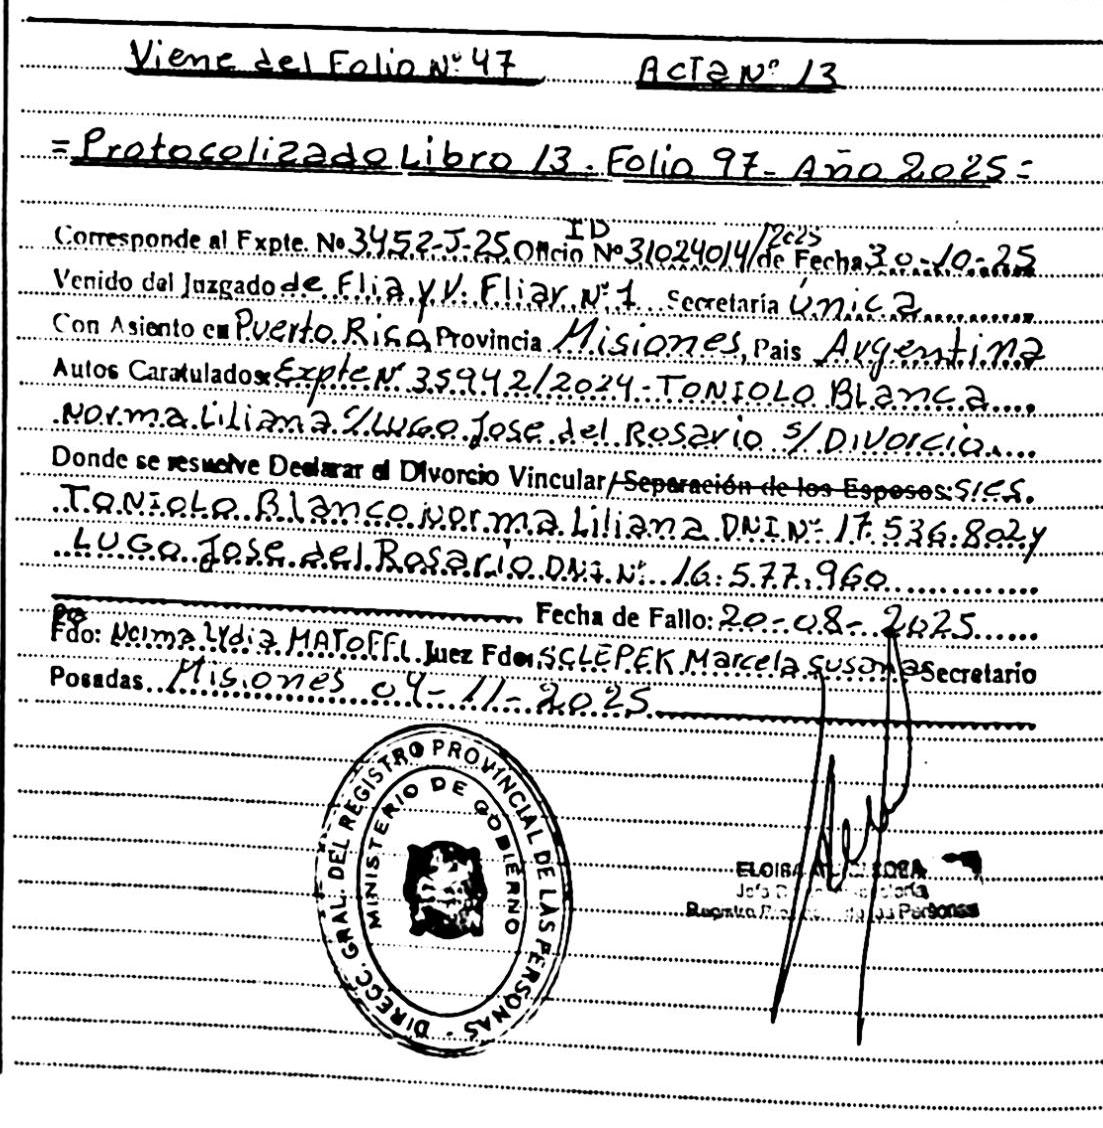 Viene del Folio Nº 47 Acta Nº 13
= Protocolizado Libro 13 . Folio 97 - Año 2025 =
Corresponde al Expte. Nº 3452-J-25 Oficio Nº ID 31024014/2025 de Fecha 30-10-25
Venido del Juzgado de Flia y V. Fliar Nº 1 Secretaría Única
Con Asiento en Puerto Rico Provincia Misiones, Pais Argentina
Autos Caratulados Expte Nº 35942/2024 - TONIOLO BLANCA
Norma Liliana C/ LUGO Jose del Rosario S/ Divorcio
Donde se resuelve Declarar el Divorcio Vincular/Separación de los Esposos: Sres.
TONIOLO Blanca Norma Liliana DNI Nº 17.536.802 y
LUGO Jose del Rosario DNI Nº 16.577.960
Fecha de Fallo: 20-08-2025
Fdo: Lydia Juez Fdo: SCLEPEK Marcela Susana Secretario
Posadas Misiones 04-11-2025
DIRECC. GRAL. DEL REGISTRO PROVINCIAL DE LAS PERSONAS -
MINISTERIO DE GOBIERNO
Personas